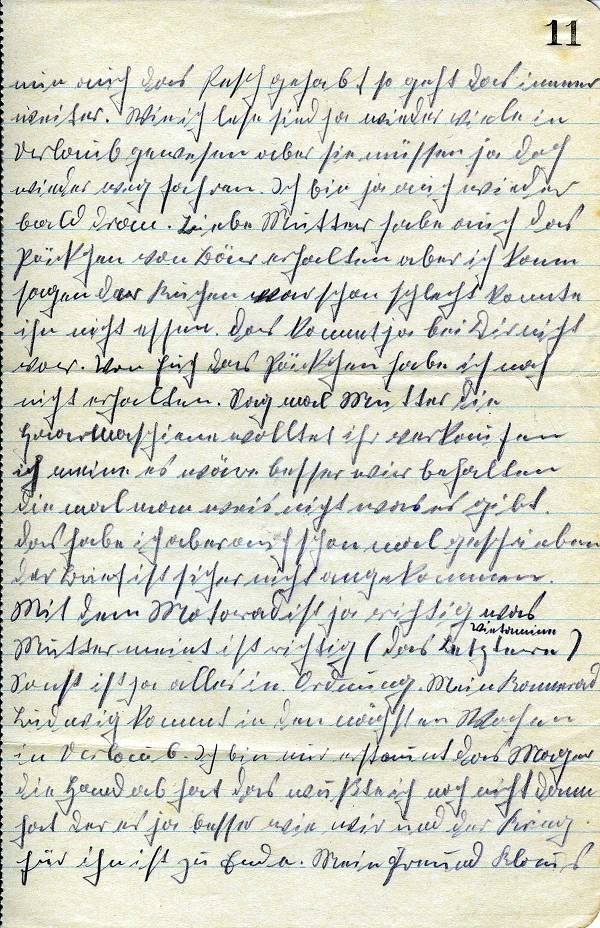 11
nun auch das Pech gehabt so geht das immer
weiter. Wie ich lese sind ja wieder viele in
Urlaub gewesen aber sie müssen ja doch
wieder weg fahren. Ich bin ja auch wieder
bald dran. Liebe Mutter habe auch das
Päckchen von erhalten aber ich kann
sagen der Kuchen war schon schlecht konnte
ihn nicht essen. das kommt ja bei Dir nicht
vor. Von Euch das Päckchen habe ich noch
nicht erhalten. Sag mal Mutter die
wolltet ihr verkaufen
ich meine es wäre besser wir behalten
die mal man weis nicht was es gibt.
das habe ich aber auch schon mal geschrieben
der Brief ist sicher nicht angekommen.
Mit dem Motorad ist ja richtig was
Mutter meint ist richtig (das Letztere)
Sonst ist ja alles in Ordnung. Mein Kamerad
Ludwig kommt in den nächsten Wochen
in Urlaub. Ich bin nur erstaunt das
die Hand ab hat das wußte ich noch nicht dann
hat der es ja besser wie wir und der Krieg
für ihn ist zu Ende. Mein Freund Klaus